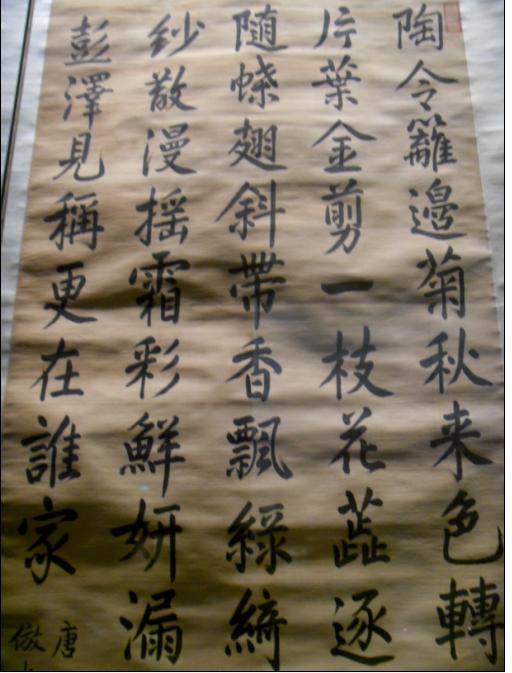 陶令籬邉菊秋来色轉
片葉金剪一枝花蕋逐
随蝶翅斜帶香飄綠綺
紗散漫揺霜彩鮮妍漏
彭澤見稱更在誰家
唐
倣